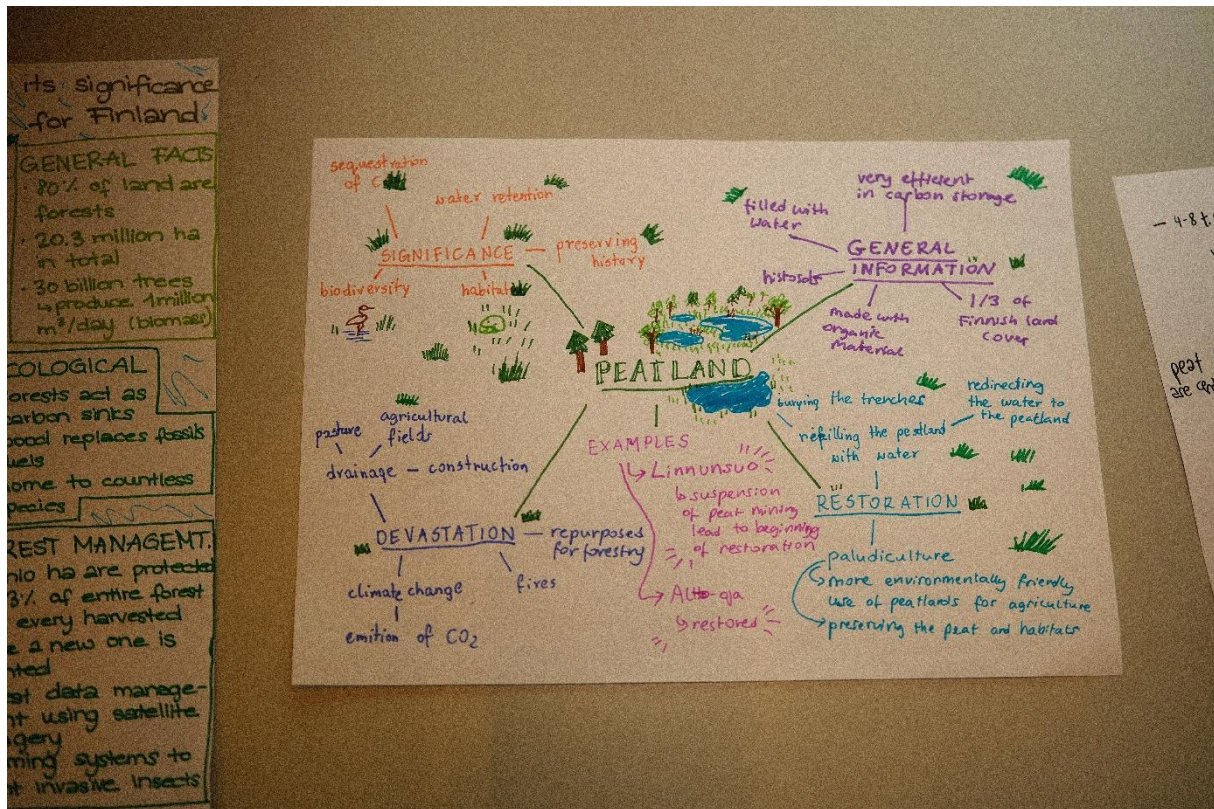 its significance
for Finland
GENERAL FACTS
· 80% of land are
forests
· 20.3 million ha
in total
· 30 billion trees
↳ produce 1million
m³/day (biomass)
COLOGICAL
orests act as
carbon sinks
ood replaces fossils
uels
ome to countless
pecies
REST MANAGEMT.
io ha are protected
3% of entire forest
every harvested
e a new one is
nted
st data manage-
nt using satellite
gery
ming systems to
t invasive insects
sequestration
of C
water retention
SIGNIFICANCE
preserving
history
biodiversity
habitat
very efficient
in carbon storage
filled with
water
GENERAL
INFORMATION
histosols
made with
organic
material
1/3 of
Finnish land
cover
PEATLAND
pasture
agricultural
fields
drainage — construction
DEVASTATION — repurposed
for forestry
climate change
fires
emition of CO₂
EXAMPLES
↳ Linnunsuo
↳ suspension
of peat mining
lead to beginning
of restoration
↳ restored
burying the trenches
redirecting
the water to
the peatland
refilling the peatland
with water
RESTORATION
paludiculture
more environmentally friendly
use of peatlands for agriculture
preserving the peat and habitats
— 4-8 t
peat
are